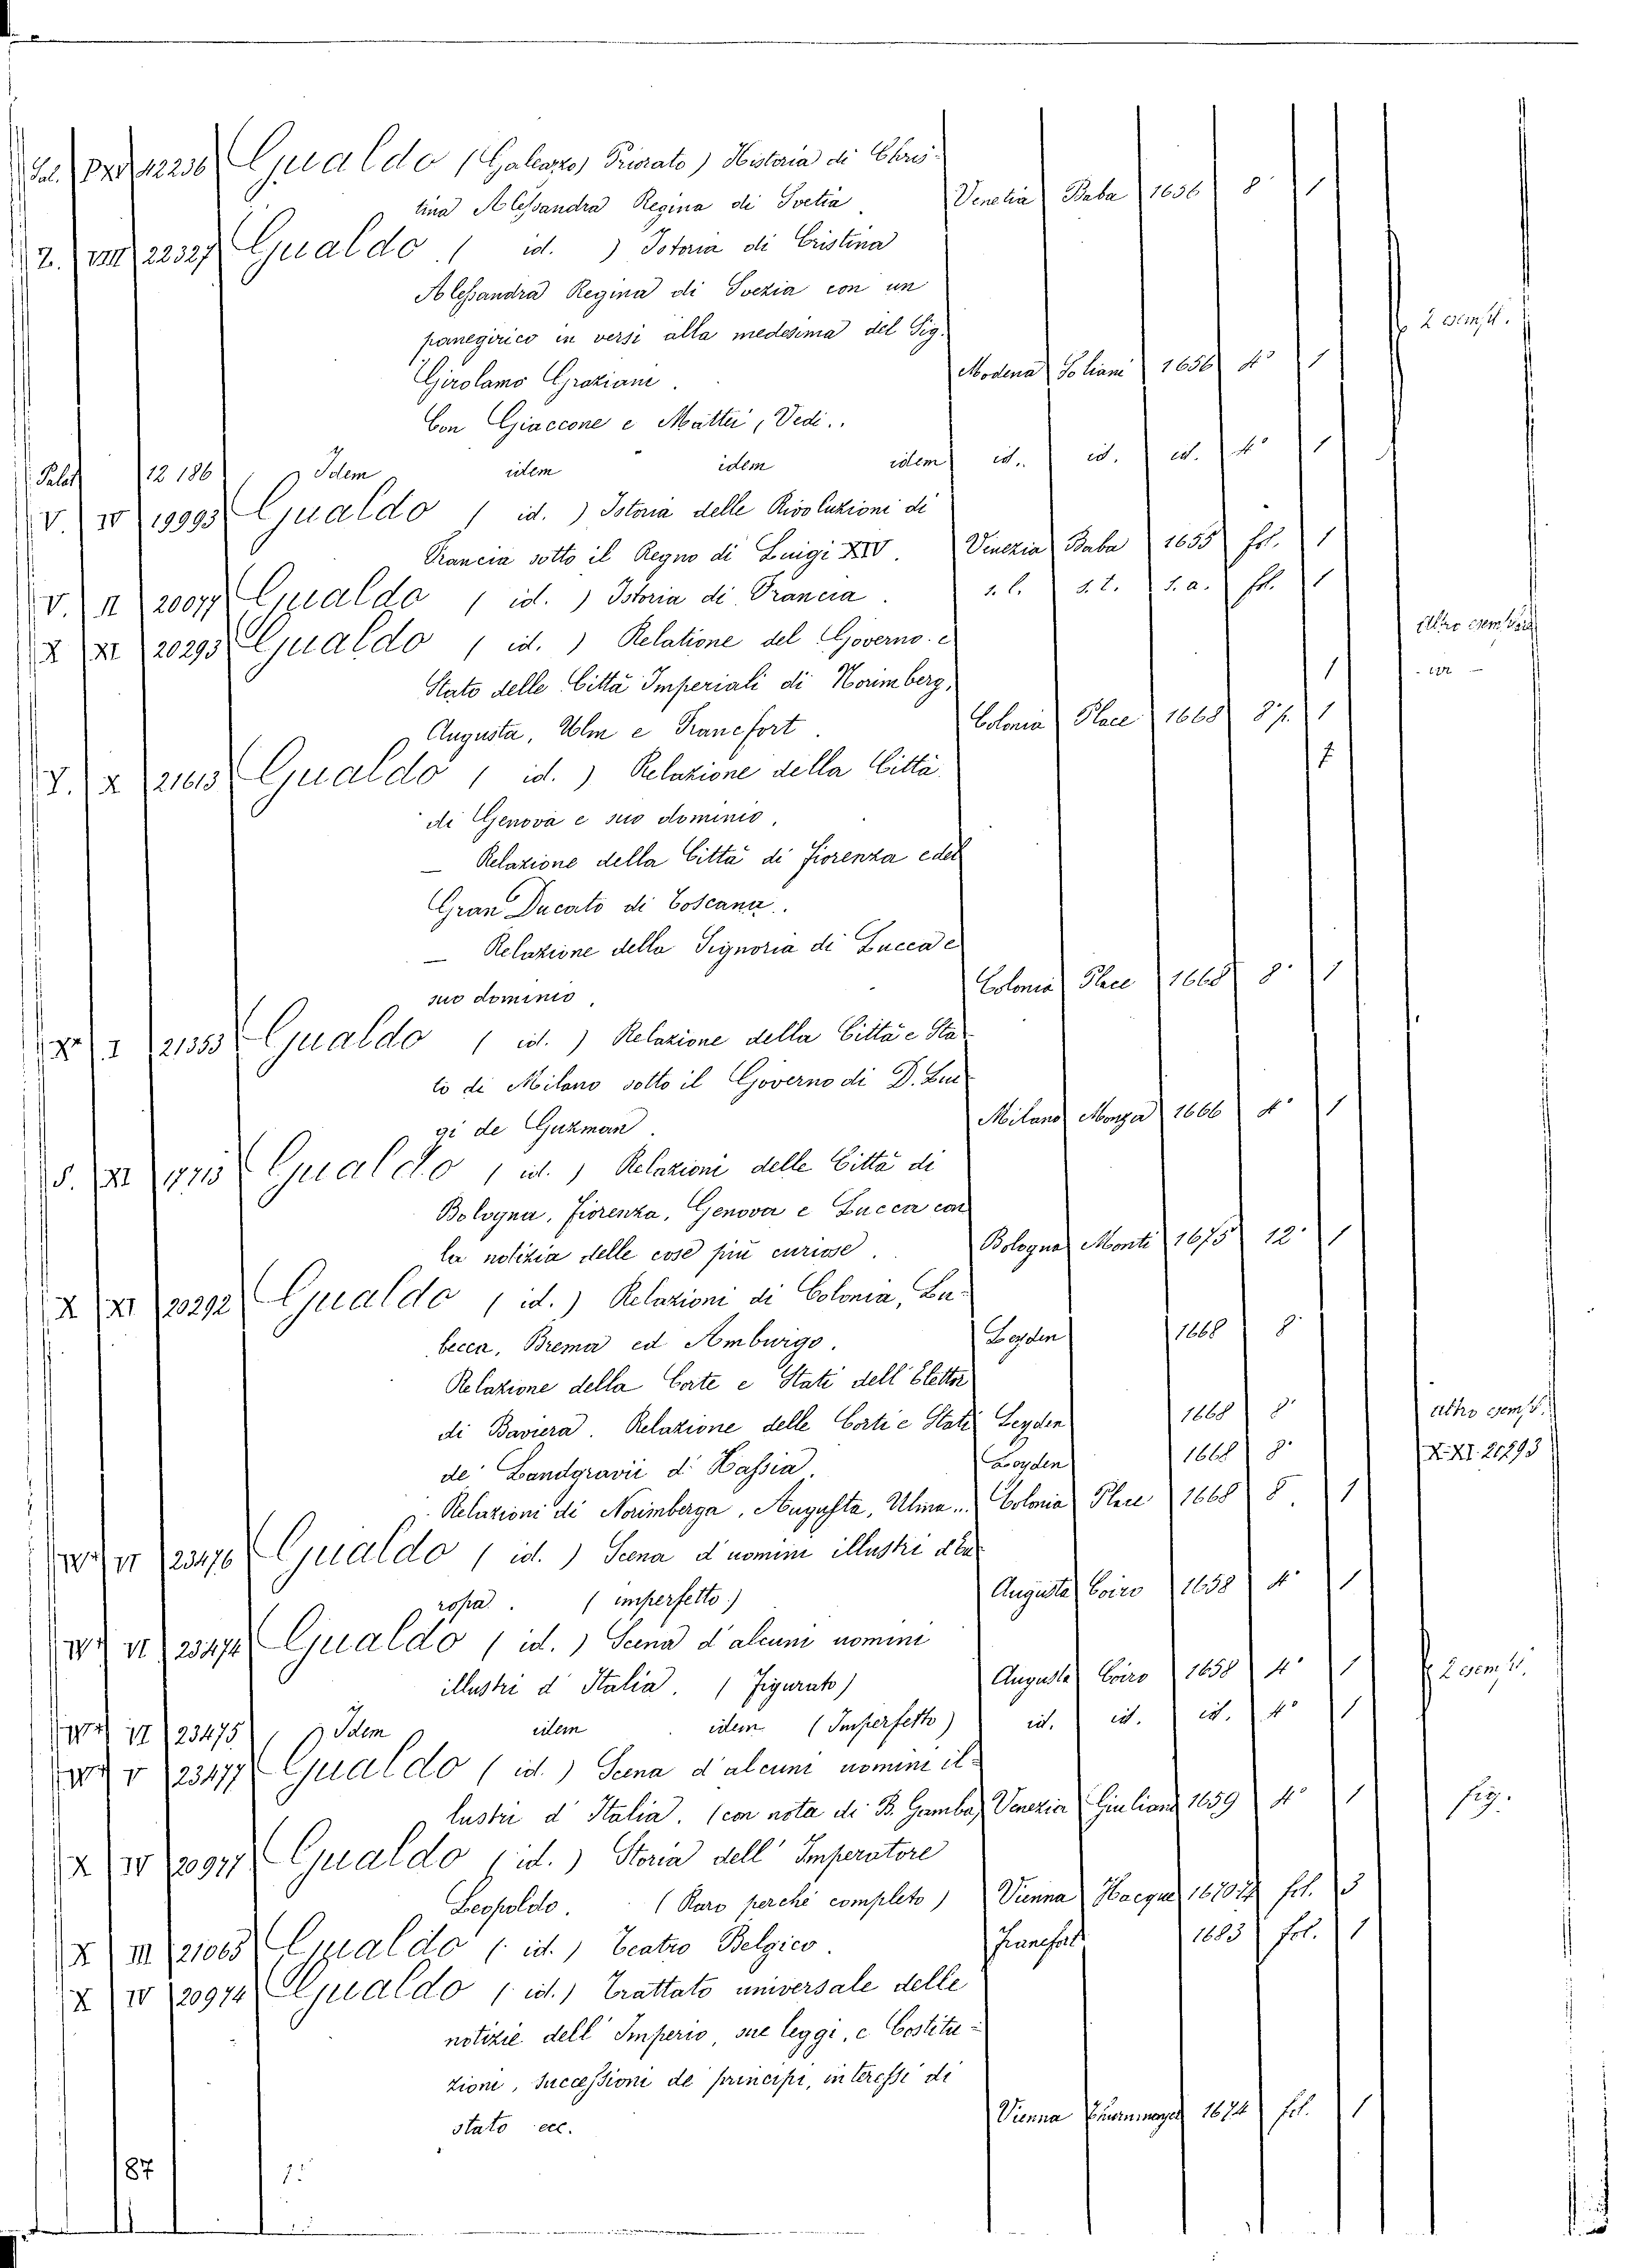 12236 Gualdo (Galeazzo Priorato) Historia di Chris-
tina Alessandra Regina di Svetia Venetia Baba 1656 8 1
Z. VIII 22327 Gualdo ( id. ) Istoria di Cristina
Alessandra Regina di Svezia con un
panegirico in versi alla medesima del Sig. 2 esempl.
Girolamo Graziani. Modena Soliani 1656 4° 1
Con Giaccone e Mattei, Vedi..
Palat 12 186 Idem idem idem idem id. id. id. 4° 1
V. IV 19993 Gualdo ( id. ) Istoria delle Rivoluzioni di
Francia sotto il Regno di Luigi XIV. Vinezia Baba 1655 fol. 1
V. II 20077 Gualdo ( id. ) Istoria di Francia. s. l. s. t. s. a. fol. 1
X XI 20293 Gualdo ( id. ) Relatione del Governo e altro
Stato delle Città Imperiali di Norimberg, 1
Augusta, Ulm e Francfort. Colonia Place 1668 8° p. 1
V. X 21613 Gualdo ( id. ) Relazione della Città 1
di Genova e suo dominio,
— Relazione della Città di Fiorenza e del
Gran Ducato di Toscana..
— Relazione della Signoria di Lucca e
suo dominio. Colonia Place 1668 8° 1
X I 21353 Gualdo ( id. ) Relazione della Città e Sta-
to di Milano sotto il Governo di D. Lui-
gi de Guzman. Milano Monza 1666 4° 1
S. XI Gualdo ( id. ) Relazioni delle Città di
Bologna, Fiorenza, Genova e Lucca con
la notizia delle cose più curiose. Bologna Monti 1675 12° 1
X XI 20292 Gualdo ( id. ) Relazioni di Colonia, Lu-
becca, Brema ed Amburgo. Leyden 1668 8°
Relazione della Corte e Stati dell'Elettor
di Baviera. Relazione delle Corti e Stati Leyden 1668 8° altro esempl.
de' Landgravii d'Hassia. Leyden 1668 8° X. XI. 20293
Relazioni di Norimberga, Augusta, Ulma... Colonia Place 1668 8 1
VI 23476 Gualdo ( id. ) Scena d'uomini illustri d'Eu-
ropa. (imperfetto) Augusta Coiro 1658 4° 1
VI 23474 Gualdo ( id. ) Scena d'alcuni uomini
illustri d'Italia. (Figurato) Augusta Coiro 1658 4° 1 2 esempl.
VI 23475 Idem idem idem (Imperfetto) id. id. id. 4° 1
V 23477 Gualdo ( id. ) Scena d'alcuni uomini il-
lustri d'Italia. (con nota di B. Gamba) Venezia Giuliani 1659 4° 1 fig.
X IV 20971 Gualdo ( id. ) Storia dell'Imperatore
Leopoldo. (Raro perchè completo) Vienna Hacque 1670 74 fol. 3
X III 21065 Gualdo ( id. ) Teatro Belgico. Francfort 1683 fol. 1
X IV 20974 Gualdo ( id. ) Trattato universale delle
notizie dell'Imperio, sue leggi, e Costitu-
zioni, successioni de' principi, interessi di
stato ecc. Vienna Thurnmayer 1674 fol. 1
187